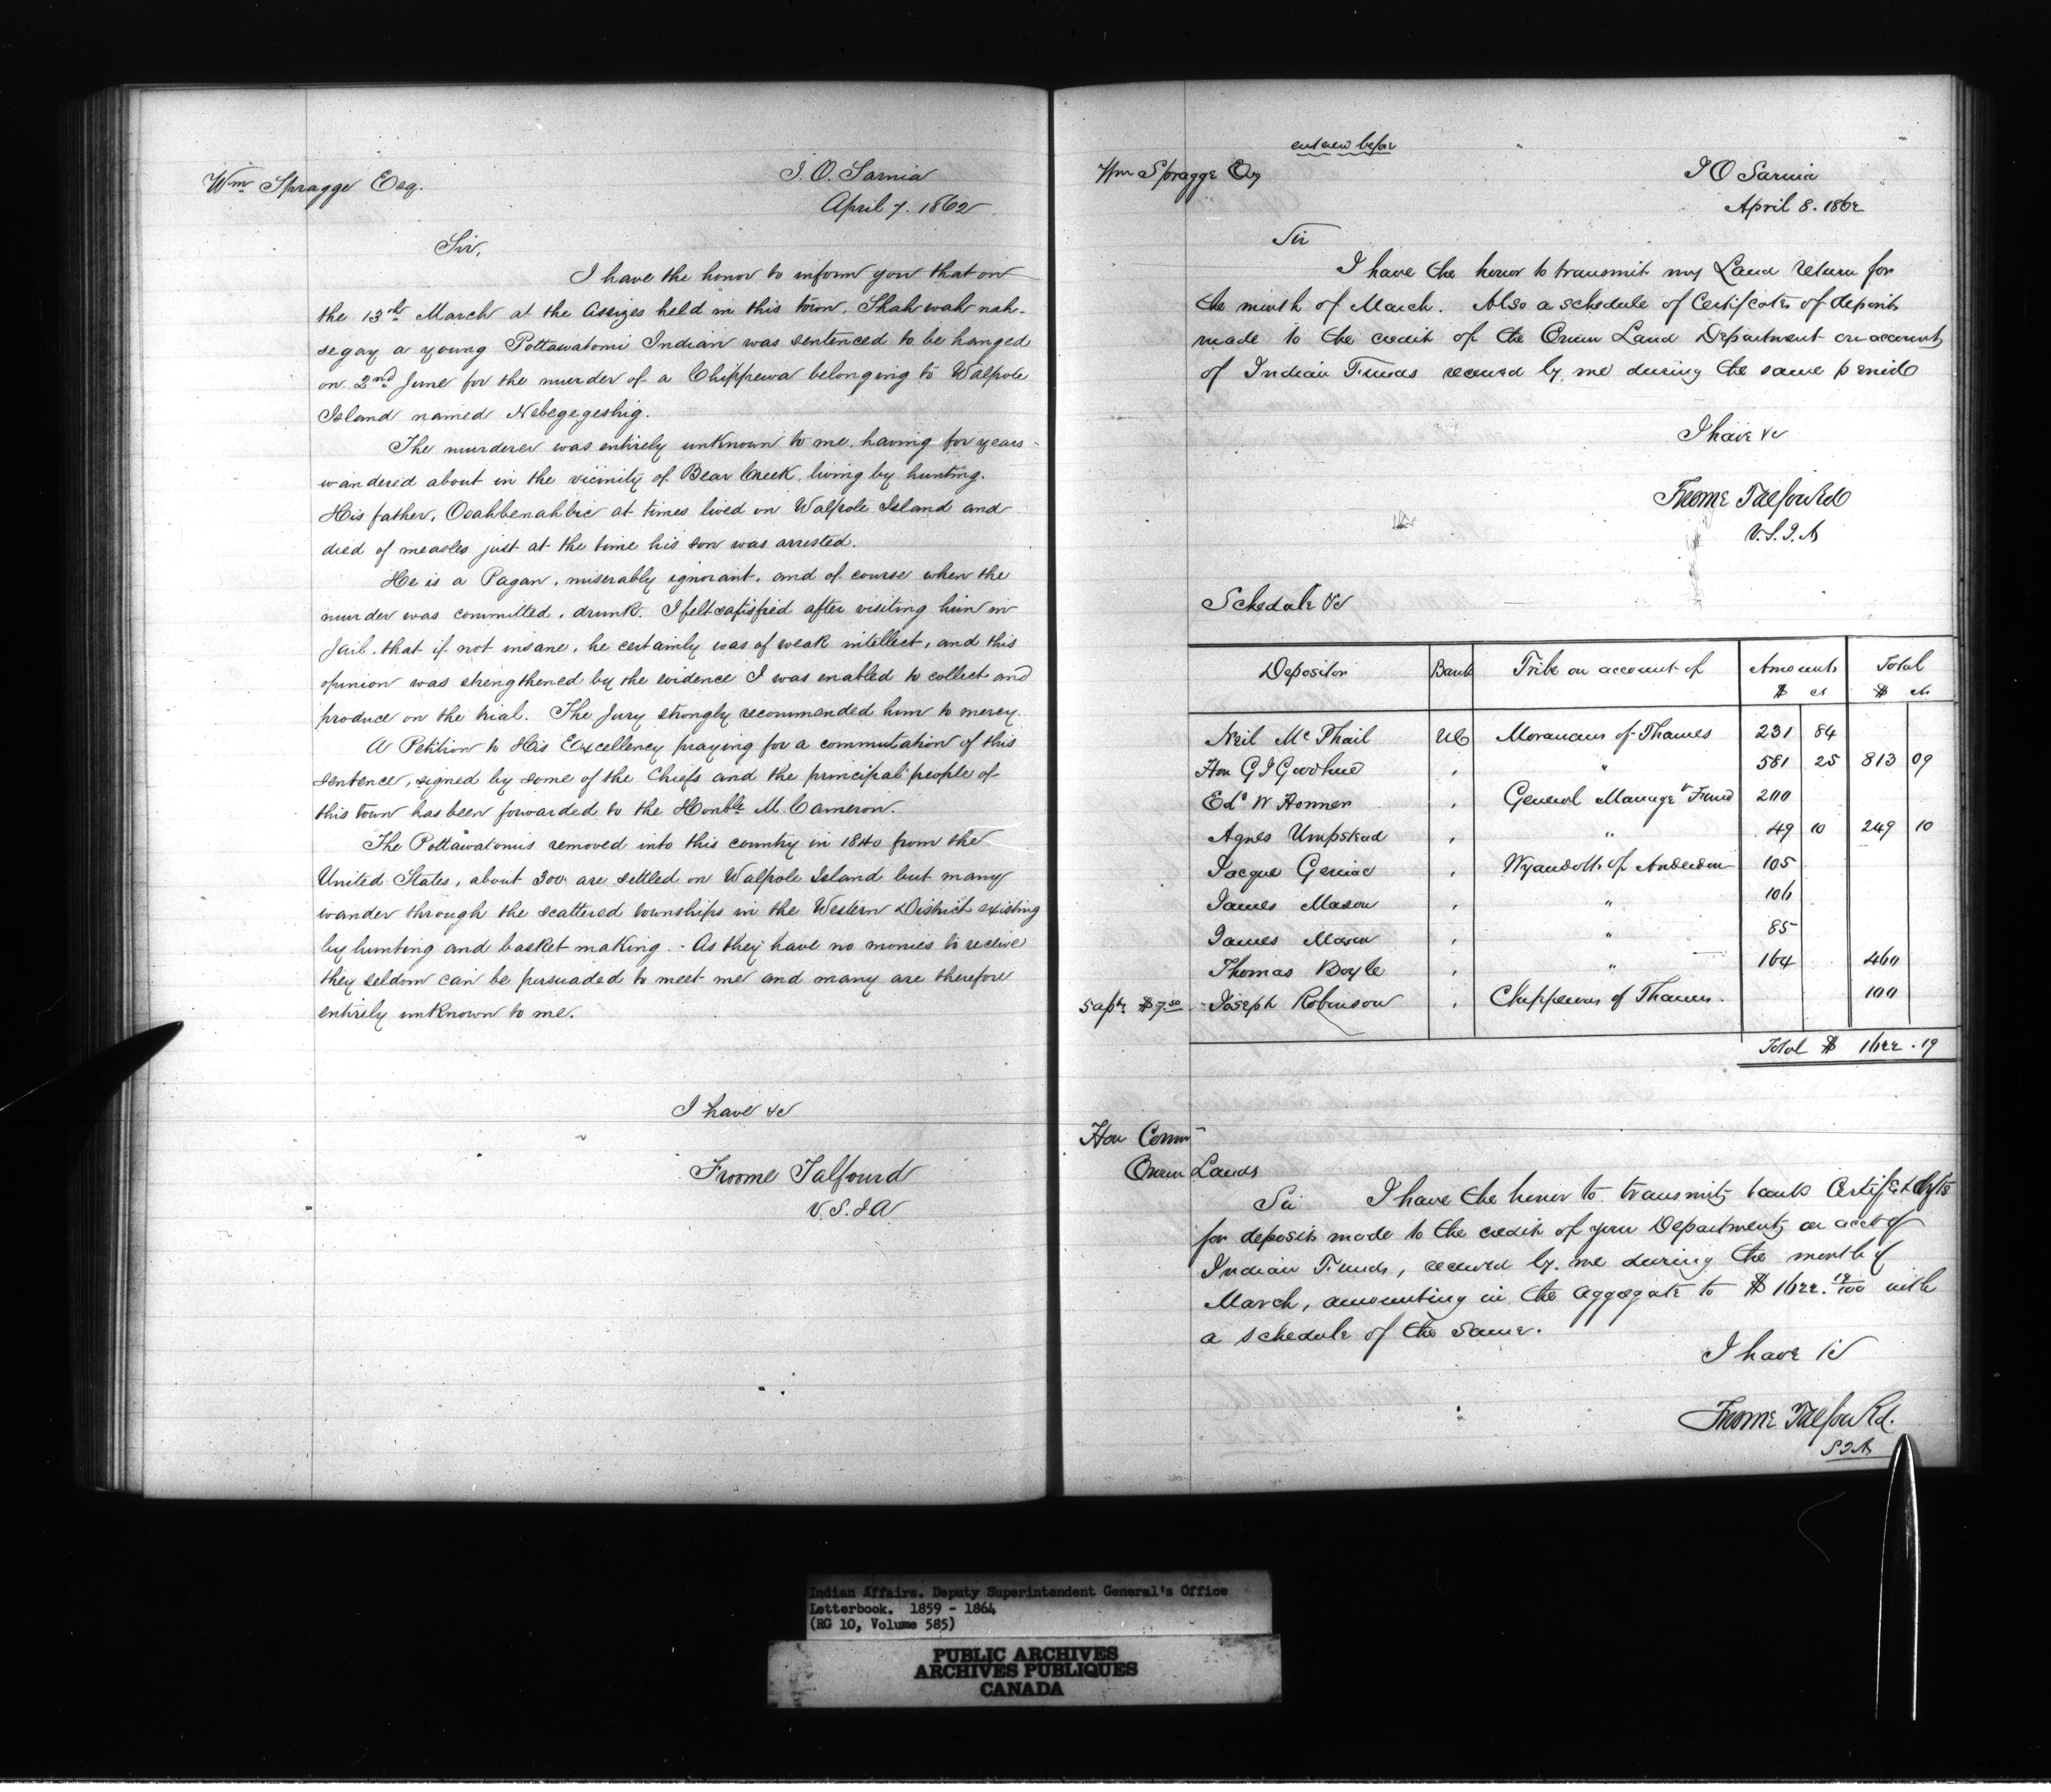 Wm Spragge Esq.
I. O. Sarnia
April 7. 1862
Sir,
I have the honor to inform you that on
the 13th March at the Assizes held in this town, Shahwahnah-
segay a young Pottawatomi Indian was sentenced to be hanged
on 2nd June for the murder of a Chippewa belonging to Walpole
Island named Nebegegeshig.
The murderer was entirely unknown to me, having for years
wandered about in the vicinity of Bear Creek, living by hunting.
His father, Osahbenahbie at times lived on Walpole Island and
died of measles just at the time his son was arrested.
He is a Pagan, miserably ignorant, and of course when the
murder was committed, drunk. I felt satisfied after visiting him in
Jail, that if not insane, he certainly was of weak intellect, and this
opinion was strengthened by the evidence I was enabled to collect and
produce on the trial. The Jury strongly recommended him to mercy.
A Petition to His Excellency praying for a commutation of this
sentence, signed by some of the Chiefs and the principal people of
this town has been forwarded to the Honble M. Cameron.
The Pottawatomis removed into this country in 1840 from the
United States, about 300 are settled on Walpole Island but many
wander through the scattered townships in the Western District existing
by hunting and basket making. - As they have no monies to receive
they seldom can be persuaded to meet me and many are therefore
entirely unknown to me.
I have &c
Froome Talfourd
V. S. I A
entered before
Wm Spragge Esq
I O Sarnia
April 8. 1862
Sir
I have the honor to transmit my Land Return for
the month of March. Also a schedule of Certificates of deposits
made to the credit of the Crown Land Department on account
of Indian Funds received by me during the same period
I have &c
Froome Talfourd
V. S. I. A
Schedule &c
Depositor Bank Tribe on account of Amount Total
$ cts $ cts
Neil McPhail UC Moravians of Thames 231 84
Hon G J Goodhue " " 581 25 813 09
Edd W Honner " General Managet Fund 200
Agnes Umpstead " " 49 10 249 10
Jacque Geniac " Wyandotts of Anderdon 105
James Mason " " 106
James Mason " " 85
Thomas Boyle " " 164 460
Sapr $7.50 Joseph Robinson " Chippewas of Thames. 100
Total $ 1622.19
Hon Commr
Crown Lands
Sir I have the honor to transmit bank Certifs &
for deposits made to the credit of your Department on acct of
Indian Funds, received by me during the month of
March, amounting in the aggregate to $ 1622. 19/100 with
a schedule of the same.
I have &c
Froome Talfourd.
S I A
Indian Affairs. Deputy Superintendent General's Office
Letterbook. 1859 - 1864
(RG 10, Volume 585)
PUBLIC ARCHIVES
ARCHIVES PUBLIQUES
CANADA